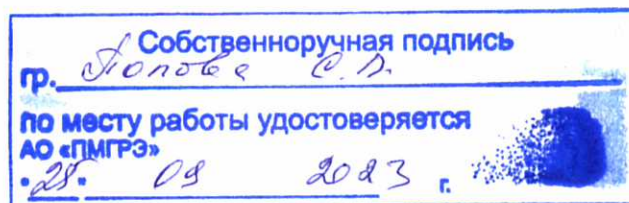 Собственноручная подпись
гр. Попова С.В.
по месту работы удостоверяется
АО «ПМГРЭ»
"28" 09 2023 г.